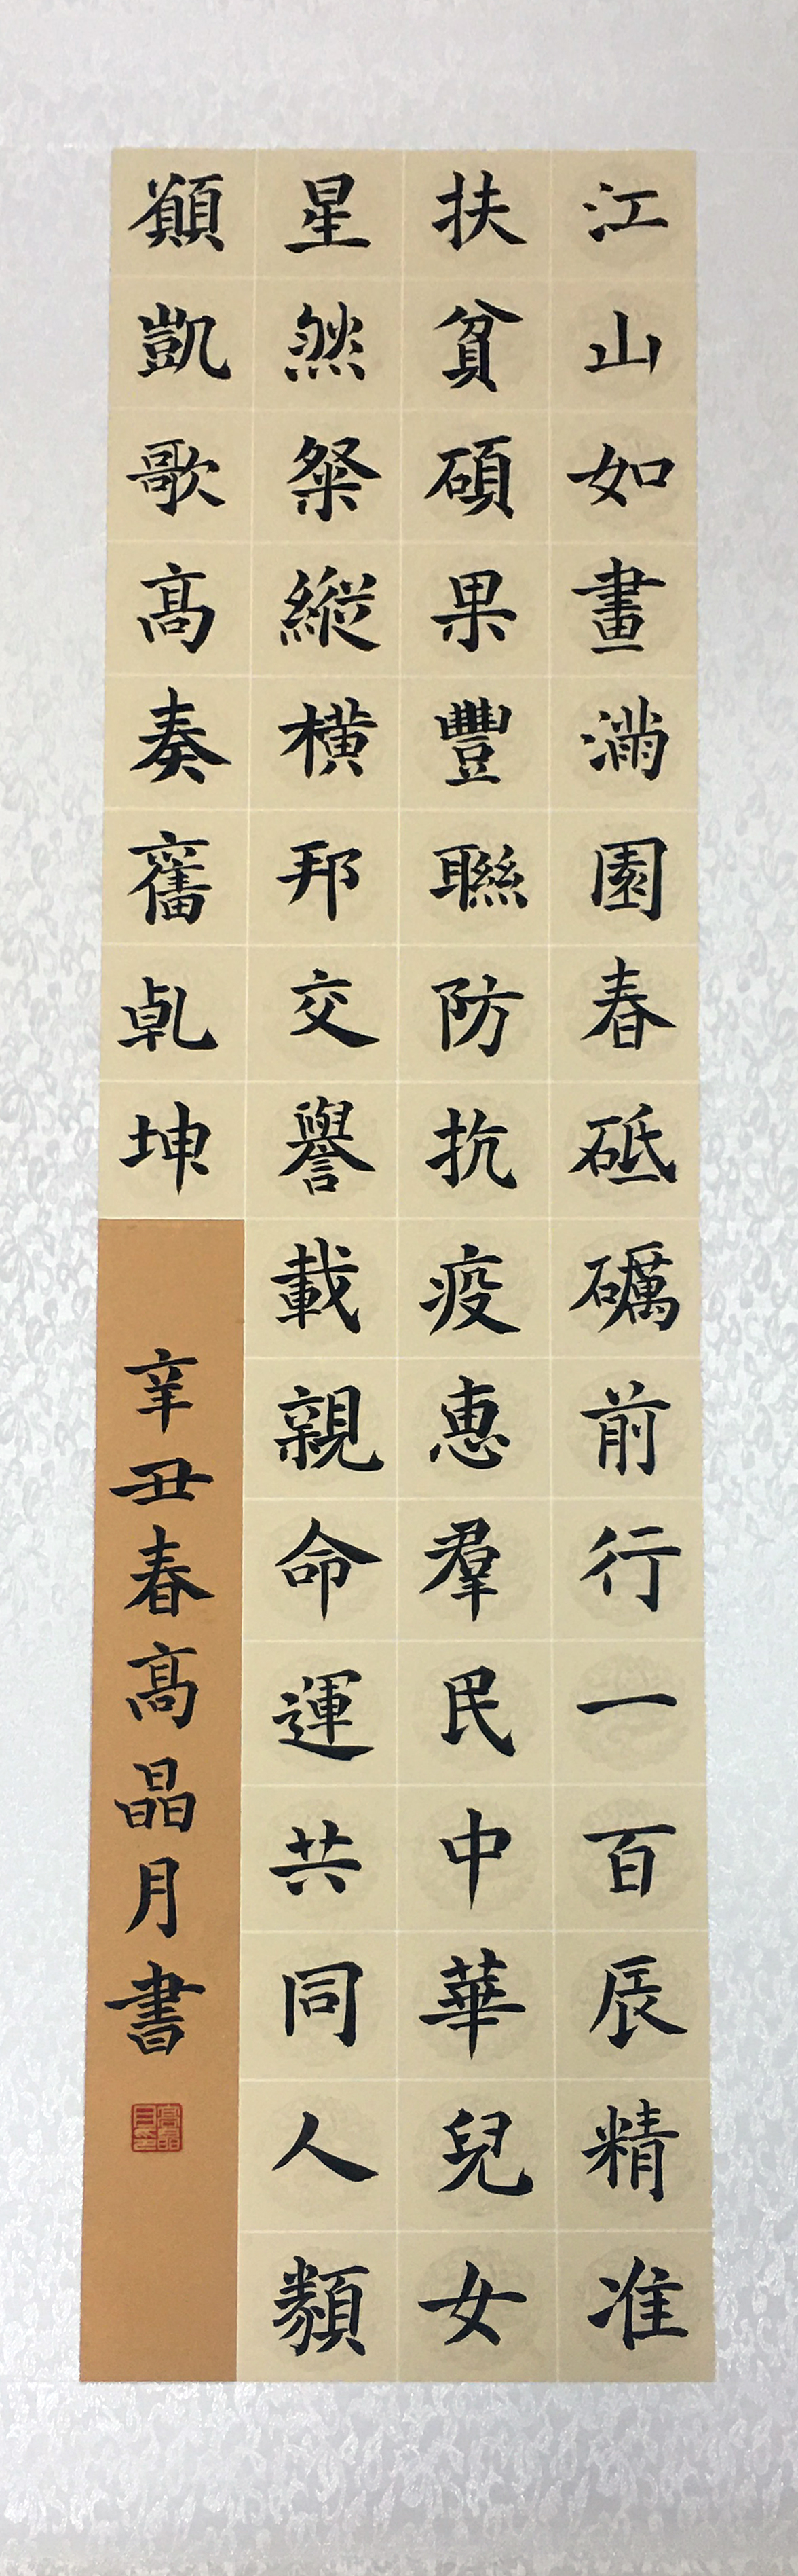 江山如畫滿園春砥礪前行一百辰精准
扶貧碩果豐聯防抗疫惠羣民中華兒女
星然粲縱橫邦交譽載親命運共同人類
顚凱歌高奏舊乹坤
辛丑春高晶月書